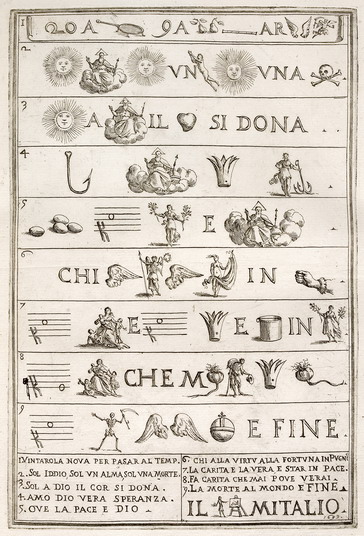 1 20 A 9A AR
2 VN VNA
3 A IL SI DONA
4
5 E
6 CHI IN
7 E E IN
8 CHE M
9 E FINE.
1.VINTAROLA NOVA PER PASAR AL TEMP.
2.SOL IDDIO SOL VN ALMA, SOL VNA MORTE.
3.SOL A DIO IL COR SI DONA.
4.AMO DIO VERA SPERANZA.
5.OVE LA PACE E DIO
6.CHI ALLA VIRTV ALLA FORTVNA IN PVGNI
7.LA CARITA E LA VERA E STAR IN PACE.
8.FA CARITA CHE MAI POVE VERAI
9.LA MORTE AL MONDO E FINE
IL MITALIO.